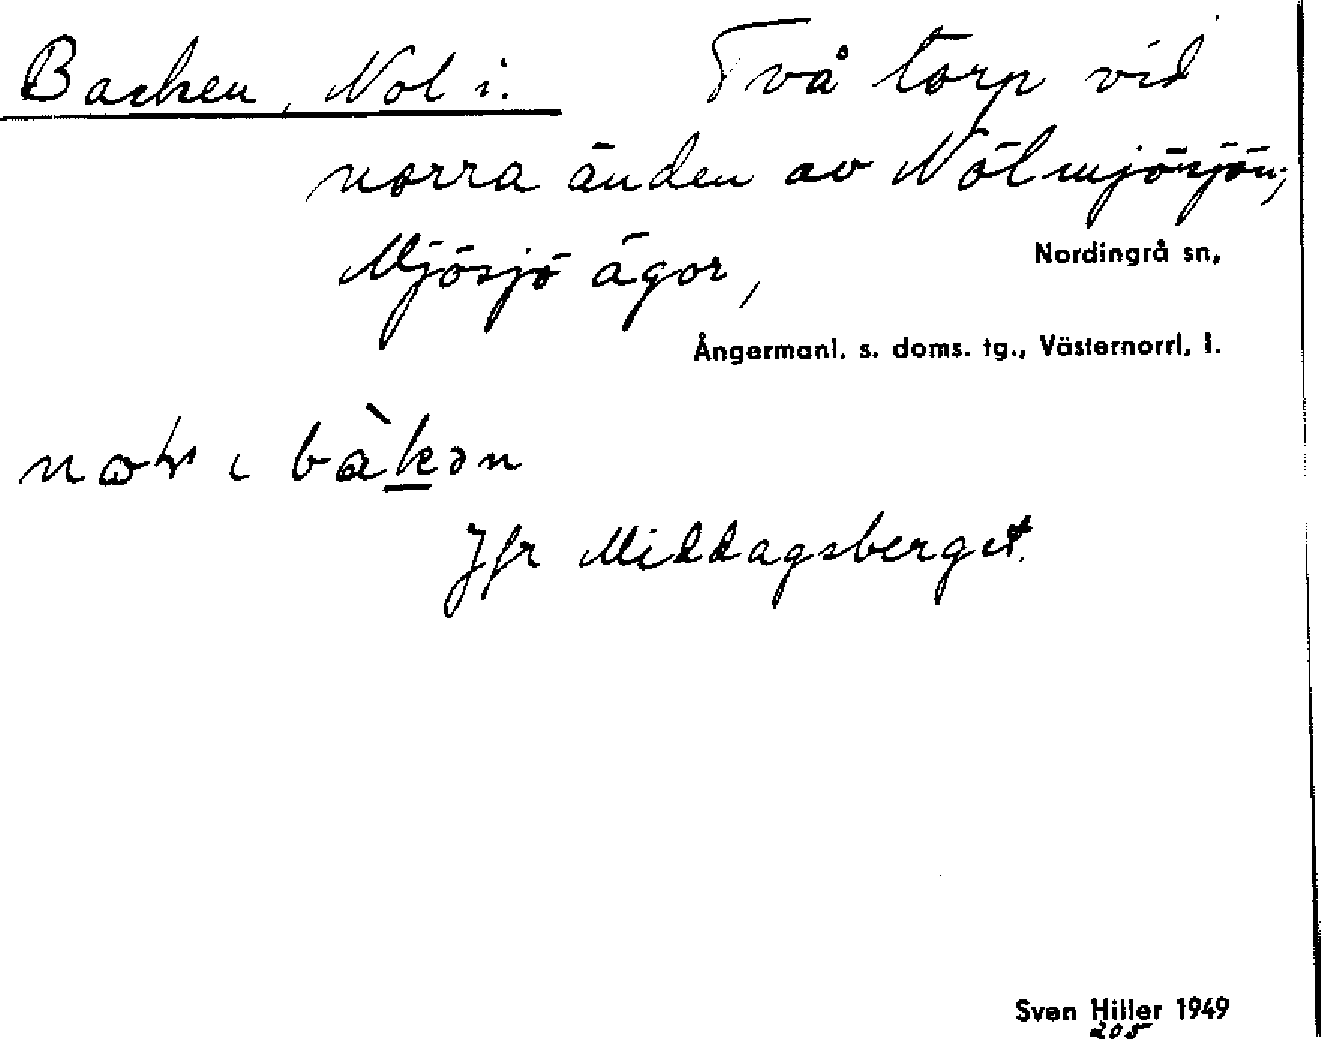 Backen, Nol i. Två torp vid
norra änden av Nölmjösjön;
Mjösjö ägor,
Nordingrå sn,
Ångermanl. s. doms. tg., Västernorrl. l.
i bàkən
Jfr Middagsberget.
Sven Hiller 1949
205